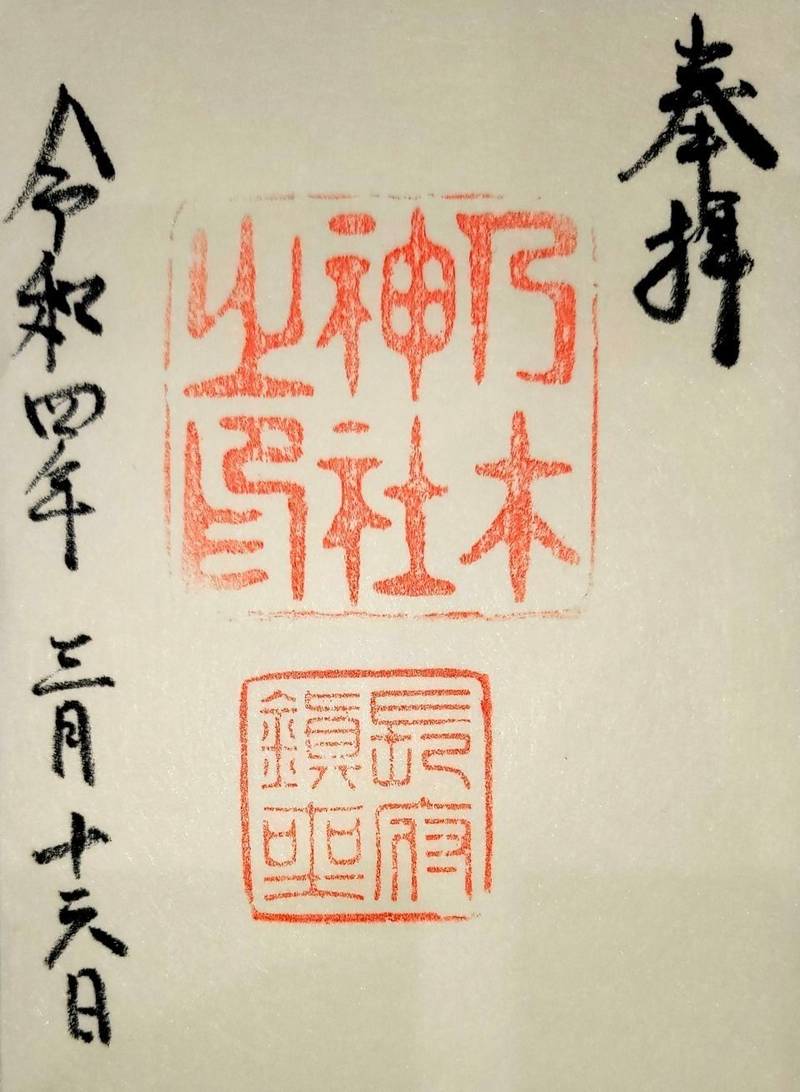 奉拝
乃木
神社
之印
長府
鎮座
令和四年 三月十六日